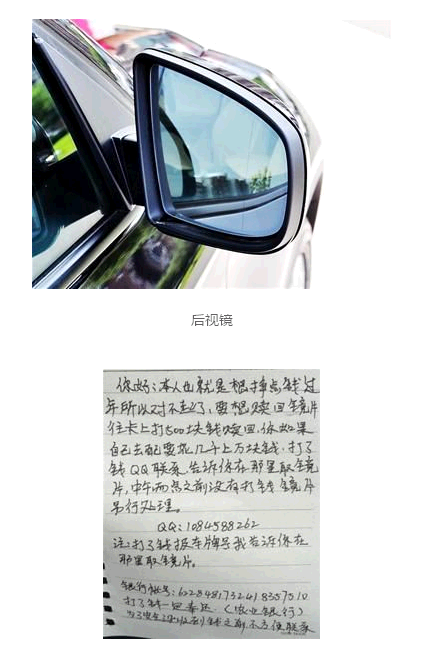 后视镜
你好：本人也就是想挣点钱过
年所以对不起了，要想赎回镜片
往卡上打500块钱赎回.你如果
自己去配要花几千上万块钱.打了
钱QQ联系.告诉你在那里取镜
片，中午两点之前没有打钱镜片
另行处理。
QQ：1084588262
注：打了钱报车牌号我告诉你在
那里取镜片。
银行帐号：6228481732418357510
打了钱一定奉还.（农业银行）
收到钱之前不方便联系